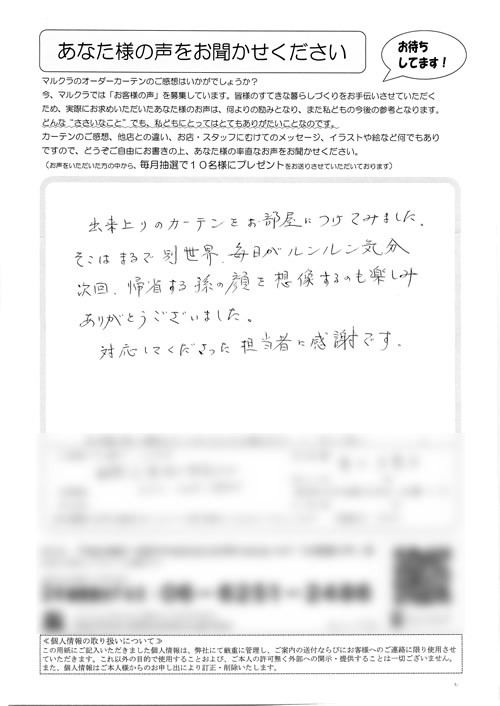 あなた様の声をお聞かせください
お待ち
してます!
マルクラのオーダーカーテンのご感想はいかがでしょうか?
今、マルクラでは「お客様の声」を募集しています。皆様のすてきな暮らしづくりをお手伝いさせていただく
ため、実際にお求めいただいたあなた様のお声は、何よりの励みとなり、また私どもの今後の参考となります。
どんな“ささいなこと”でも、私どもにとってはとてもありがたいことなのです。
カーテンのご感想、他店との違い、お店・スタッフにむけてのメッセージ、イラストや絵など何でもあり
ですので、どうぞご自由にお書きの上、あなた様の率直なお声をお聞かせください。
(お声をいただいた方の中から、毎月抽選で10名様にプレゼントをお送りさせていただいております)
出来上りのカーテンをお部屋につけてみました。
そこはまるで別世界、毎日がルンルン気分
次回、帰省する孫の顔を想像するのも楽しみ
ありがとうございました。
対応してくださった担当者に感謝です。
06-6251-2486
≪個人情報の取り扱いについて≫
この用紙にご記入いただきました個人情報は、弊社にて厳重に管理し、ご案内の送付ならびにお客様へのご連絡に限り使用させ
ていただきます。これ以外の目的で使用することおよび、ご本人の許可無く外部への開示・提供することは一切ございません。
また、個人情報はご本人様からのお申し出により訂正・削除いたします。